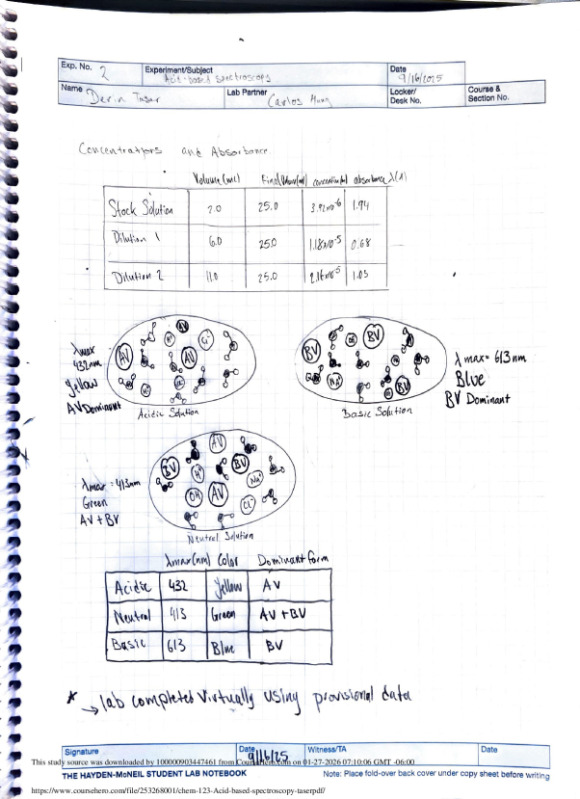 Exp. No. 2 Experiment/Subject Acid-based spectroscopy Date 9/16/2025
Name Derin Taser Lab Partner Carlos Locker/ Desk No. Course & Section No.
Concentrations and Absorbance
Volume (mL) Final absorbance λ(A)
Stock Solution 2.0 25.0 3.92x10⁻⁶ 1.94
Dilution 1 6.0 25.0 1.18x10⁻⁵ 0.68
Dilution 2 11.0 25.0 2.16x10⁻⁵ 1.05
λmax
432nm
Yellow
AV Dominant
AV
AV AV
Cl⁻
Acidic Solution
BV BV
BV
Na⁺
Basic Solution
λmax= 613nm
Blue
BV Dominant
λmax = 413nm
Green
AV + BV
AV
BV H⁺ BV
Na⁺
OH AV
Cl⁻
Neutral Solution
λmax(nm) Color Dominant form
Acidic 432 Yellow AV
Neutral 413 Green AV + BV
Basic 613 Blue BV
* → lab completed virtually using provisional data
Signature Date 9/16/25 Witness/TA Date
This study source was downloaded by 100000903447461 from CourseHero.com on 01-27-2026 07:10:06 GMT -06:00
THE HAYDEN-McNEIL STUDENT LAB NOTEBOOK Note: Place fold-over back cover under copy sheet before writing
https://www.coursehero.com/file/253268001/chem-123-Acid-based-spectroscopy-taserpdf/